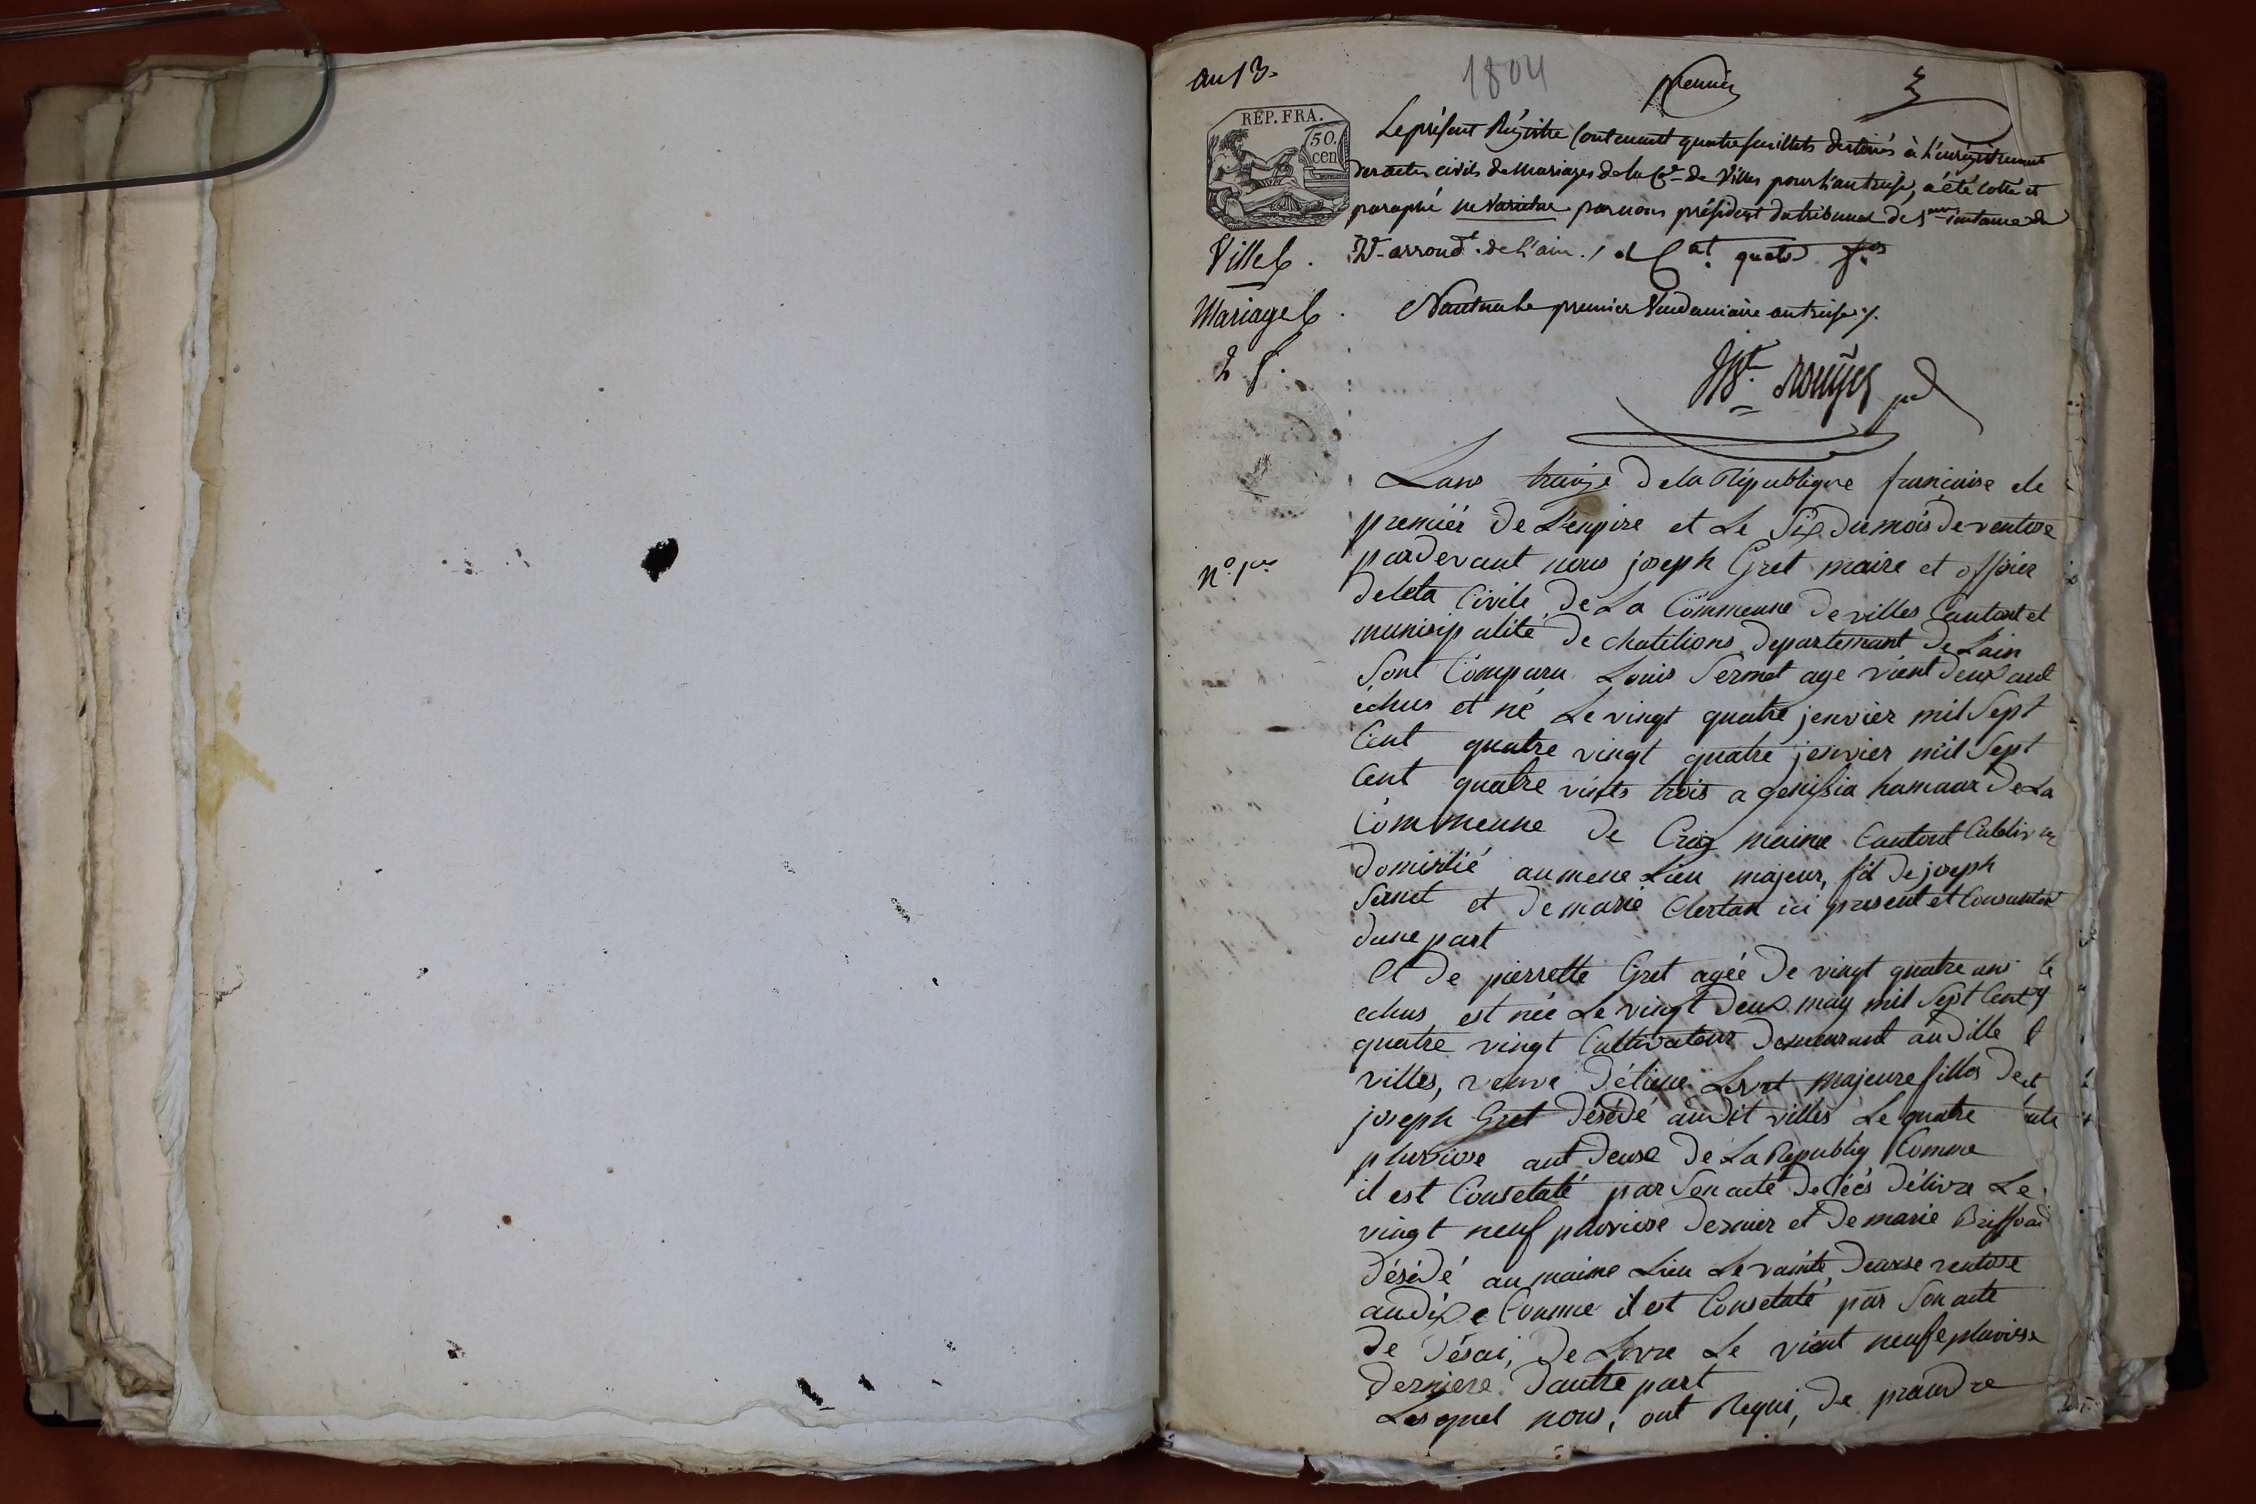 an 13.
1804
premier
RÉP. FRA.
50.
cen
Le présent Régistre Contenant quatre feuillets destinés à l'enrégistrement
des actes civils de Mariages de la Cne de Villes pour l'an treize, a été cotté et
paraphé ne varietur par nous président du tribunal de 1ere instance du
arrond.t de l'ain
Villes.
Mariages.
Nantua le premier Vendemiaire an treize
2 f.
Jn Bt. Rouyer pdt
N.º 1er
Lans traize de la République francaise ele
premiér de L'enpire et Le Six du mois de ventose
par devant nous joseph Gret maire et offisier
deleta Civile de La Commeune de villes Cantont et
munisipalité de chatilions departemant de Lain
Sont Comparu Louis Sermet age vient deux ant
échus et né Le vingt quatre jenvier mil Sept
Cent quatre vingt quatre jenvier mil Sept
Cent quatre vints trois a genissia hamaux de La
Commeune de Craz maime Cantont Cultiv
domislié au mene Lieu majeur, fil de joseph
Sermet et de marie Clertan ici present et Consantan
dune part
Et de pierrette Gret agée de vingt quatre ans
echus est née Le vingt deux may mil Sept Cent
quatre vingt Cultivateur demeurant audille
villes, veuve majeure filles de
joseph Gret désédé audit villes Le quatre
pluviose ant deuse de La Republiq Comme
il est Consetaté par Son acte decéés délivre Le
vingt neuf pluviose dernier et de marie Briffod
désédé au maime Lieu Le vainte deuxse ventose
andix e Comme il est Consetaté par Son acte
de désai, de Livre Le vient neufe pluviose
derniere dautre part
Lesquel nous, ont Requi, de praindre